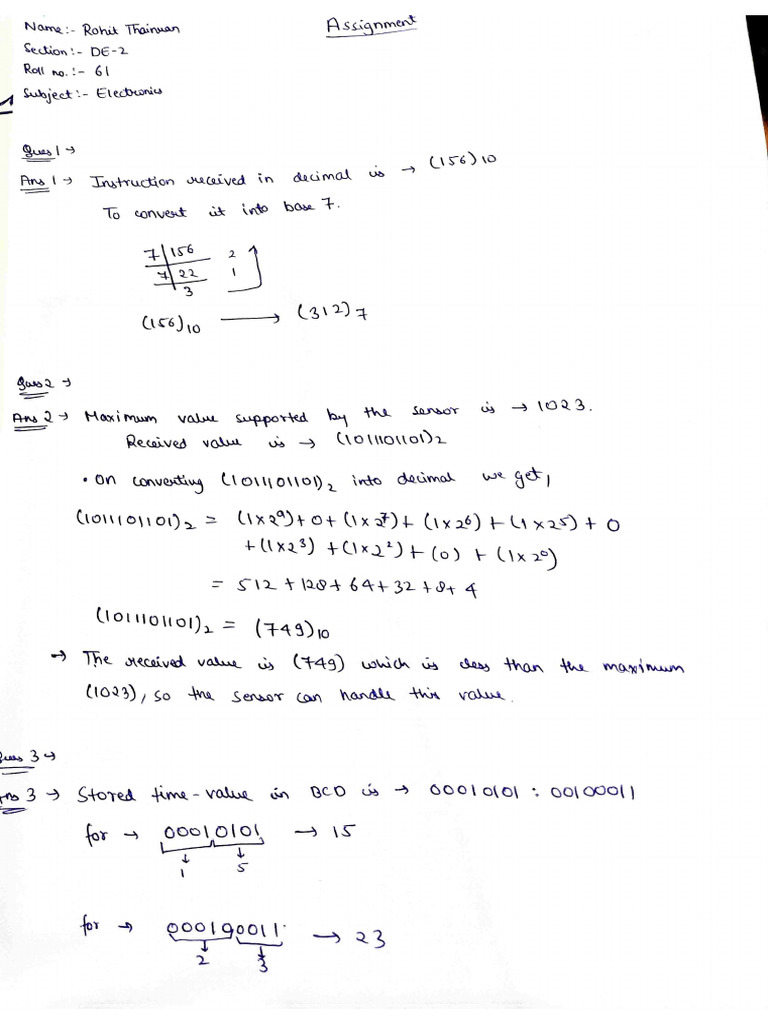 Assignment
Name:- Rohit Thainuan
Section:- DE-2
Roll no.:- 61
Subject:- Electronics
Ques 1 →
Ans 1 → Instruction received in decimal is → (156)10
To convert it into base 7.
7 | 156 2
7 | 22 1
3
(156)10 ⟶ (312)7
Ques 2 →
Ans 2 → Maximum value supported by the sensor is → 1023.
Received value is → (1011101101)2
• On converting (1011101101)2 into decimal we get,
(1011101101)2 = (1×2⁹) + 0 + (1×2⁷) + (1×2⁶) + (1×2⁵) + 0
+ (1×2³) + (1×2²) + (0) + (1×2⁰)
= 512 + 128 + 64 + 32 + 8 + 4
(1011101101)2 = (749)10
→ The received value is (749) which is less than the maximum
(1023), so the sensor can handle this value.
Ques 3 →
Ans 3 → Stored time-value in BCD is → 00010101 : 00100011
for → 00010101 → 15
1 5
for → 00010011 → 23
2 3